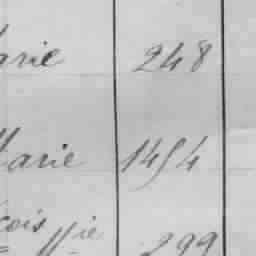 arie 248
Marie 1454
çois Mie 299